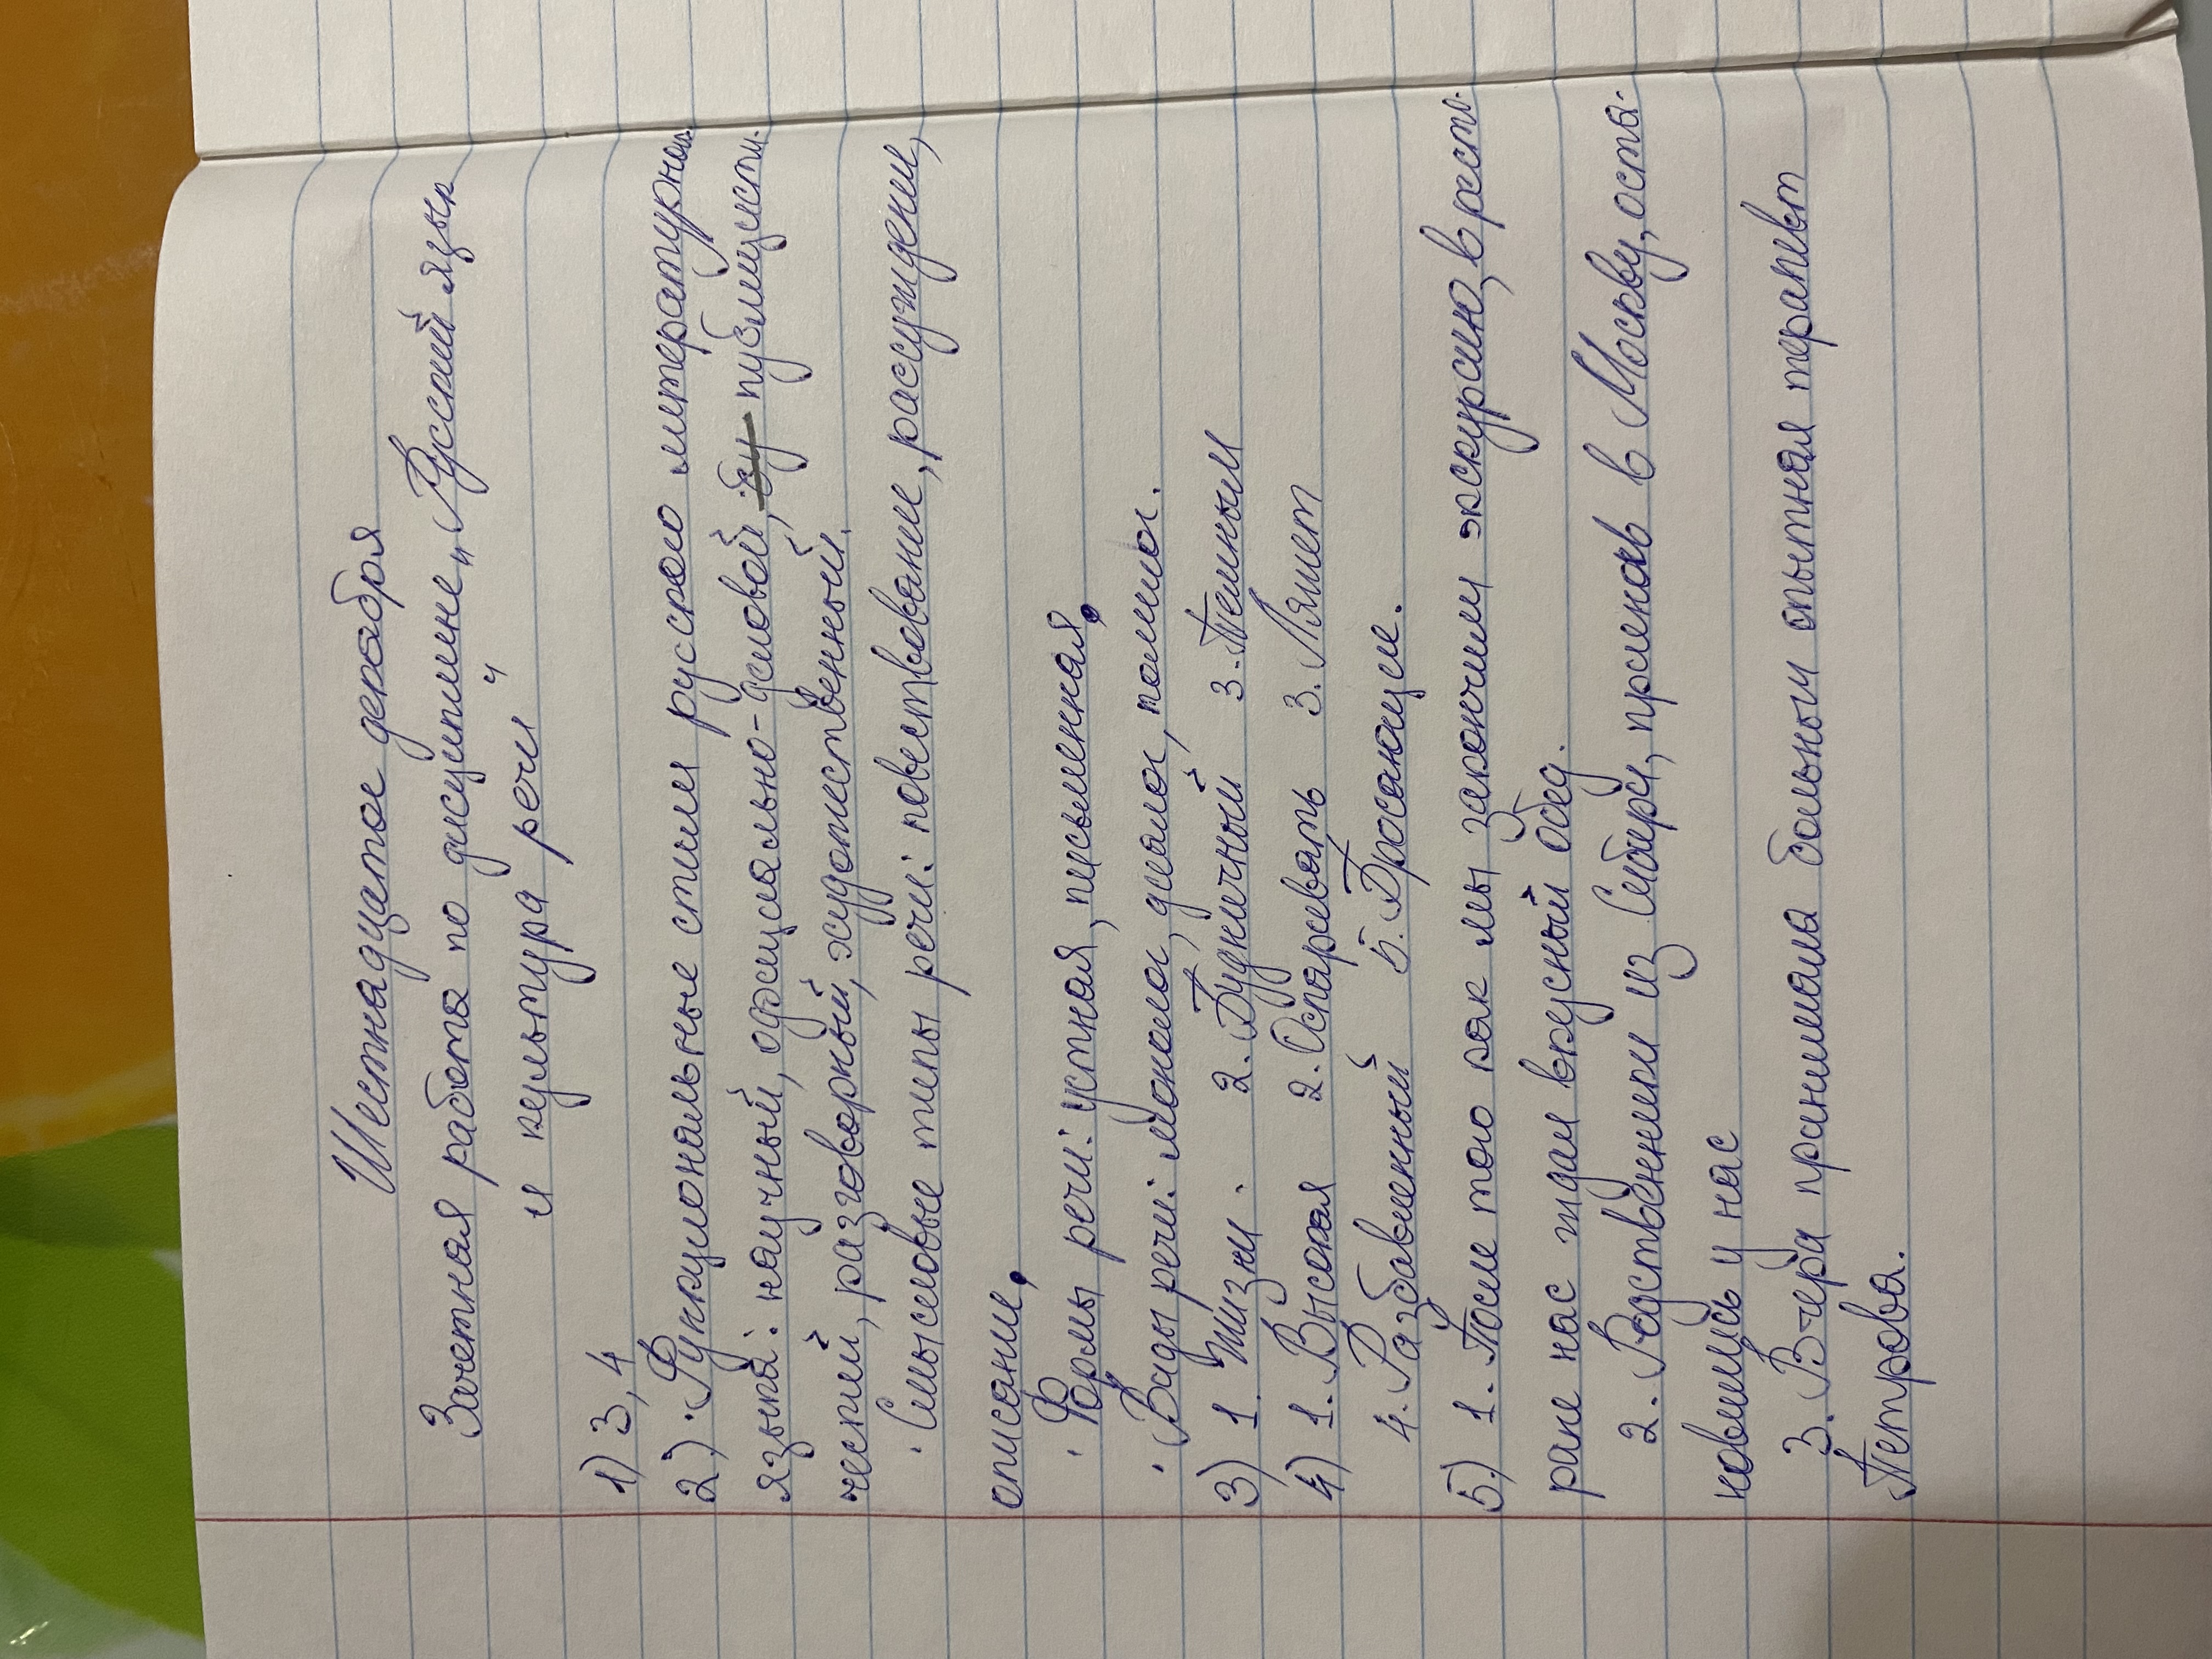 Шестнадцатое декабря
Зачетная работа по дисциплине „Русский язык
и культура речи"
1) 3, 4
2) · Функциональные стили русского литературного
языка: научный, официально-деловой, публицисти-
ческий, разговорный, художественный.
· Смысловые типы речи: повествование, рассуждение,
описание.
· Формы речи: устная, письменная.
· Виды речи: монолог, диалог, полилог.
3) 1. Жизни. 2. Будничный 3. Темным
4) 1. Высокая 2. Оспаривать 3. Ляжет
4. Разбавленный 5. Бросающие.
5) 1. После того как мы закончим экскурсию, в ресто-
ране нас ждал вкусный обед.
2. Родственники из Сибири, приехав в Москву, оста-
новились у нас
3. Вчера принимала больных опытная терапевт
Петрова.